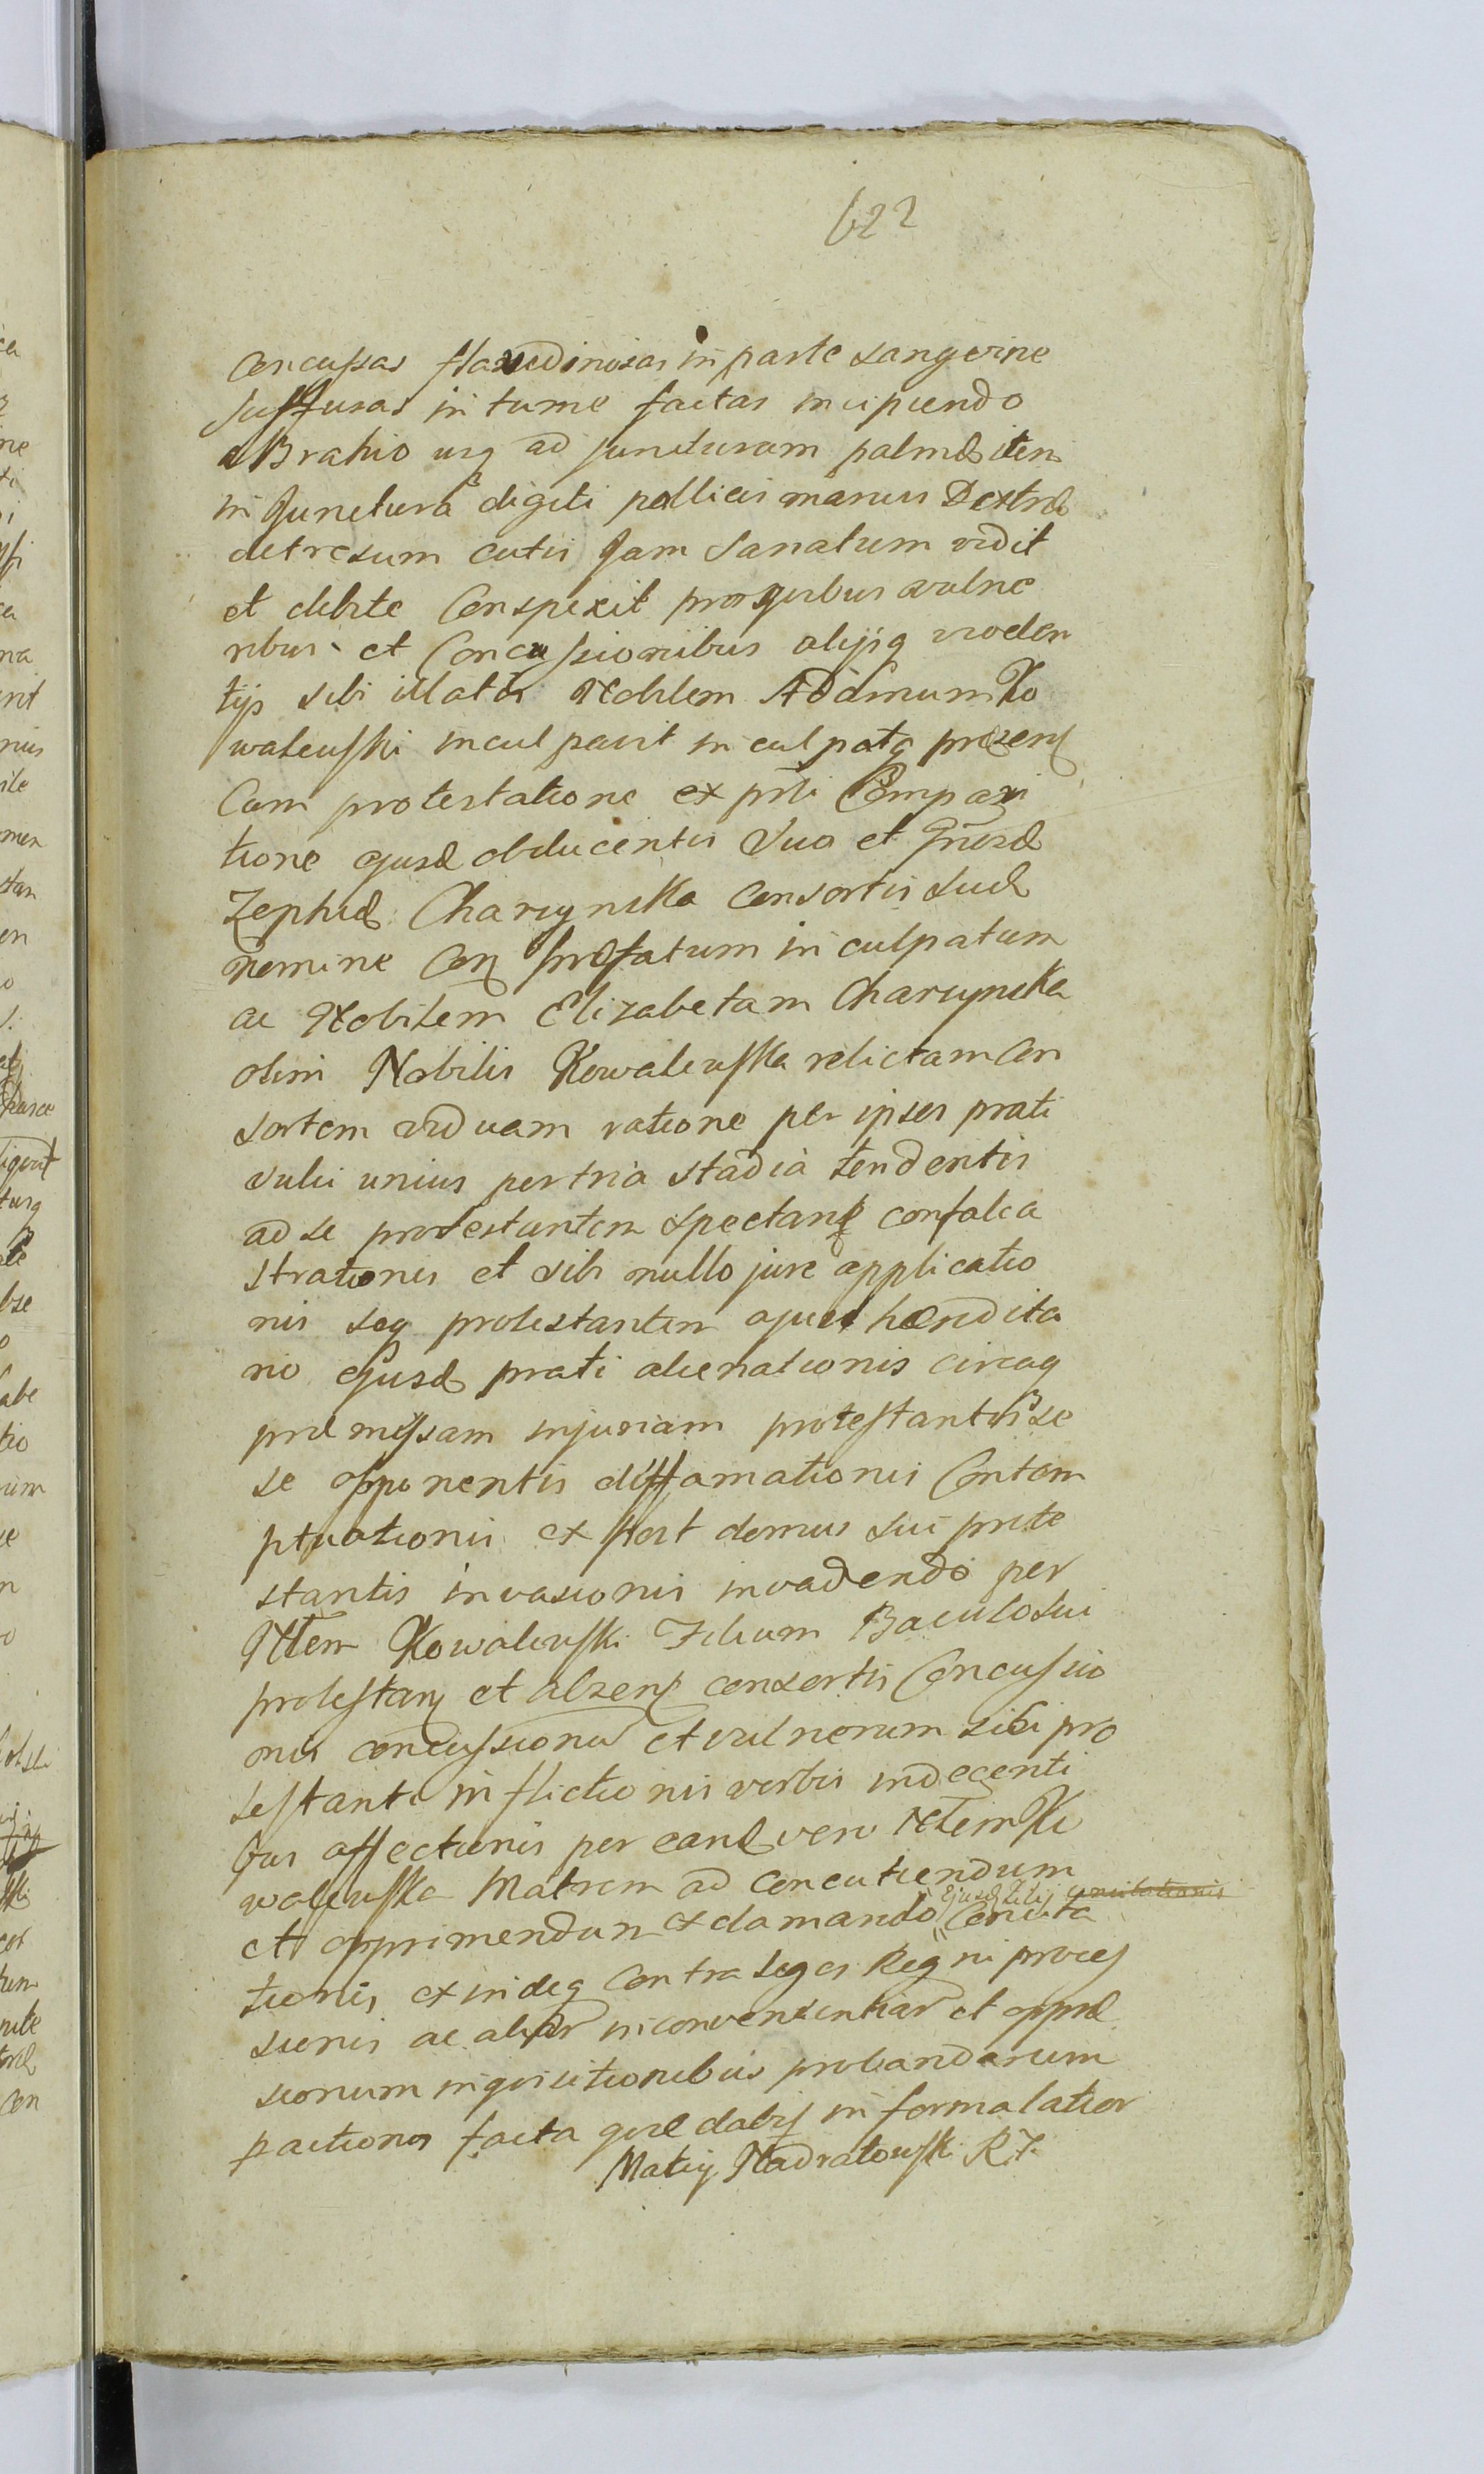 622
Concussas flavedinosas in parte sangvine
suffusas in tume factas incipiendo
a Brahio usq ad juncturam palmæ item
in Junctura digiti pollicis manus Dextræ
detresum cutis Jam Sanatum vidit
et debite Conspexit pro quibus vulne
ribus et Concussionibus alijsq violen
tijs sibi illatis Nobilem Adamum Ko
walewski inculpavit inculpatq præsens
Cum protestatione ex pñti Compari
tione ejusd obducentis Suo et Gñosæ
Zephiæ Charzynska Consortis suæ
nomine Con præfatum inculpatum
ac Nobilem Elizabetam Charzynska
olim Nobilis Kowalewska relictam Con
sortem viduam ratione per ipsos prati
sulis unius per tria stadia tendentis
ad se protestantem spectans confalca
strationis et sibi nullo jure applicatio
nis seq protestantem hærædita
rio ejusd prati alienationis circaq
præmissam injuriam protestantis se
se opponentis diffamationis Contem
ptuationis et post domus sui prote
stantis invasionis invadendo per
Nlem Kowalewski Filium Baculo sui
protestans et absens consortis Concussio
nis concussionum et vulnerum sibi pro
testanti inflictionis verbis indecenti
bus affectionis per eand vero Nlem Ko
walewska Matrem ad concutiendum
et opprimendum exclamando ejusd Filij Concita
tionis exindeq Contra Leges Regni proces
sionis ac aliar inconvenientiar et oppræ
sionum inquisitionibus probandarum
pactionis facta quæ dabis in forma latior
Matys Nadratowski R.T.